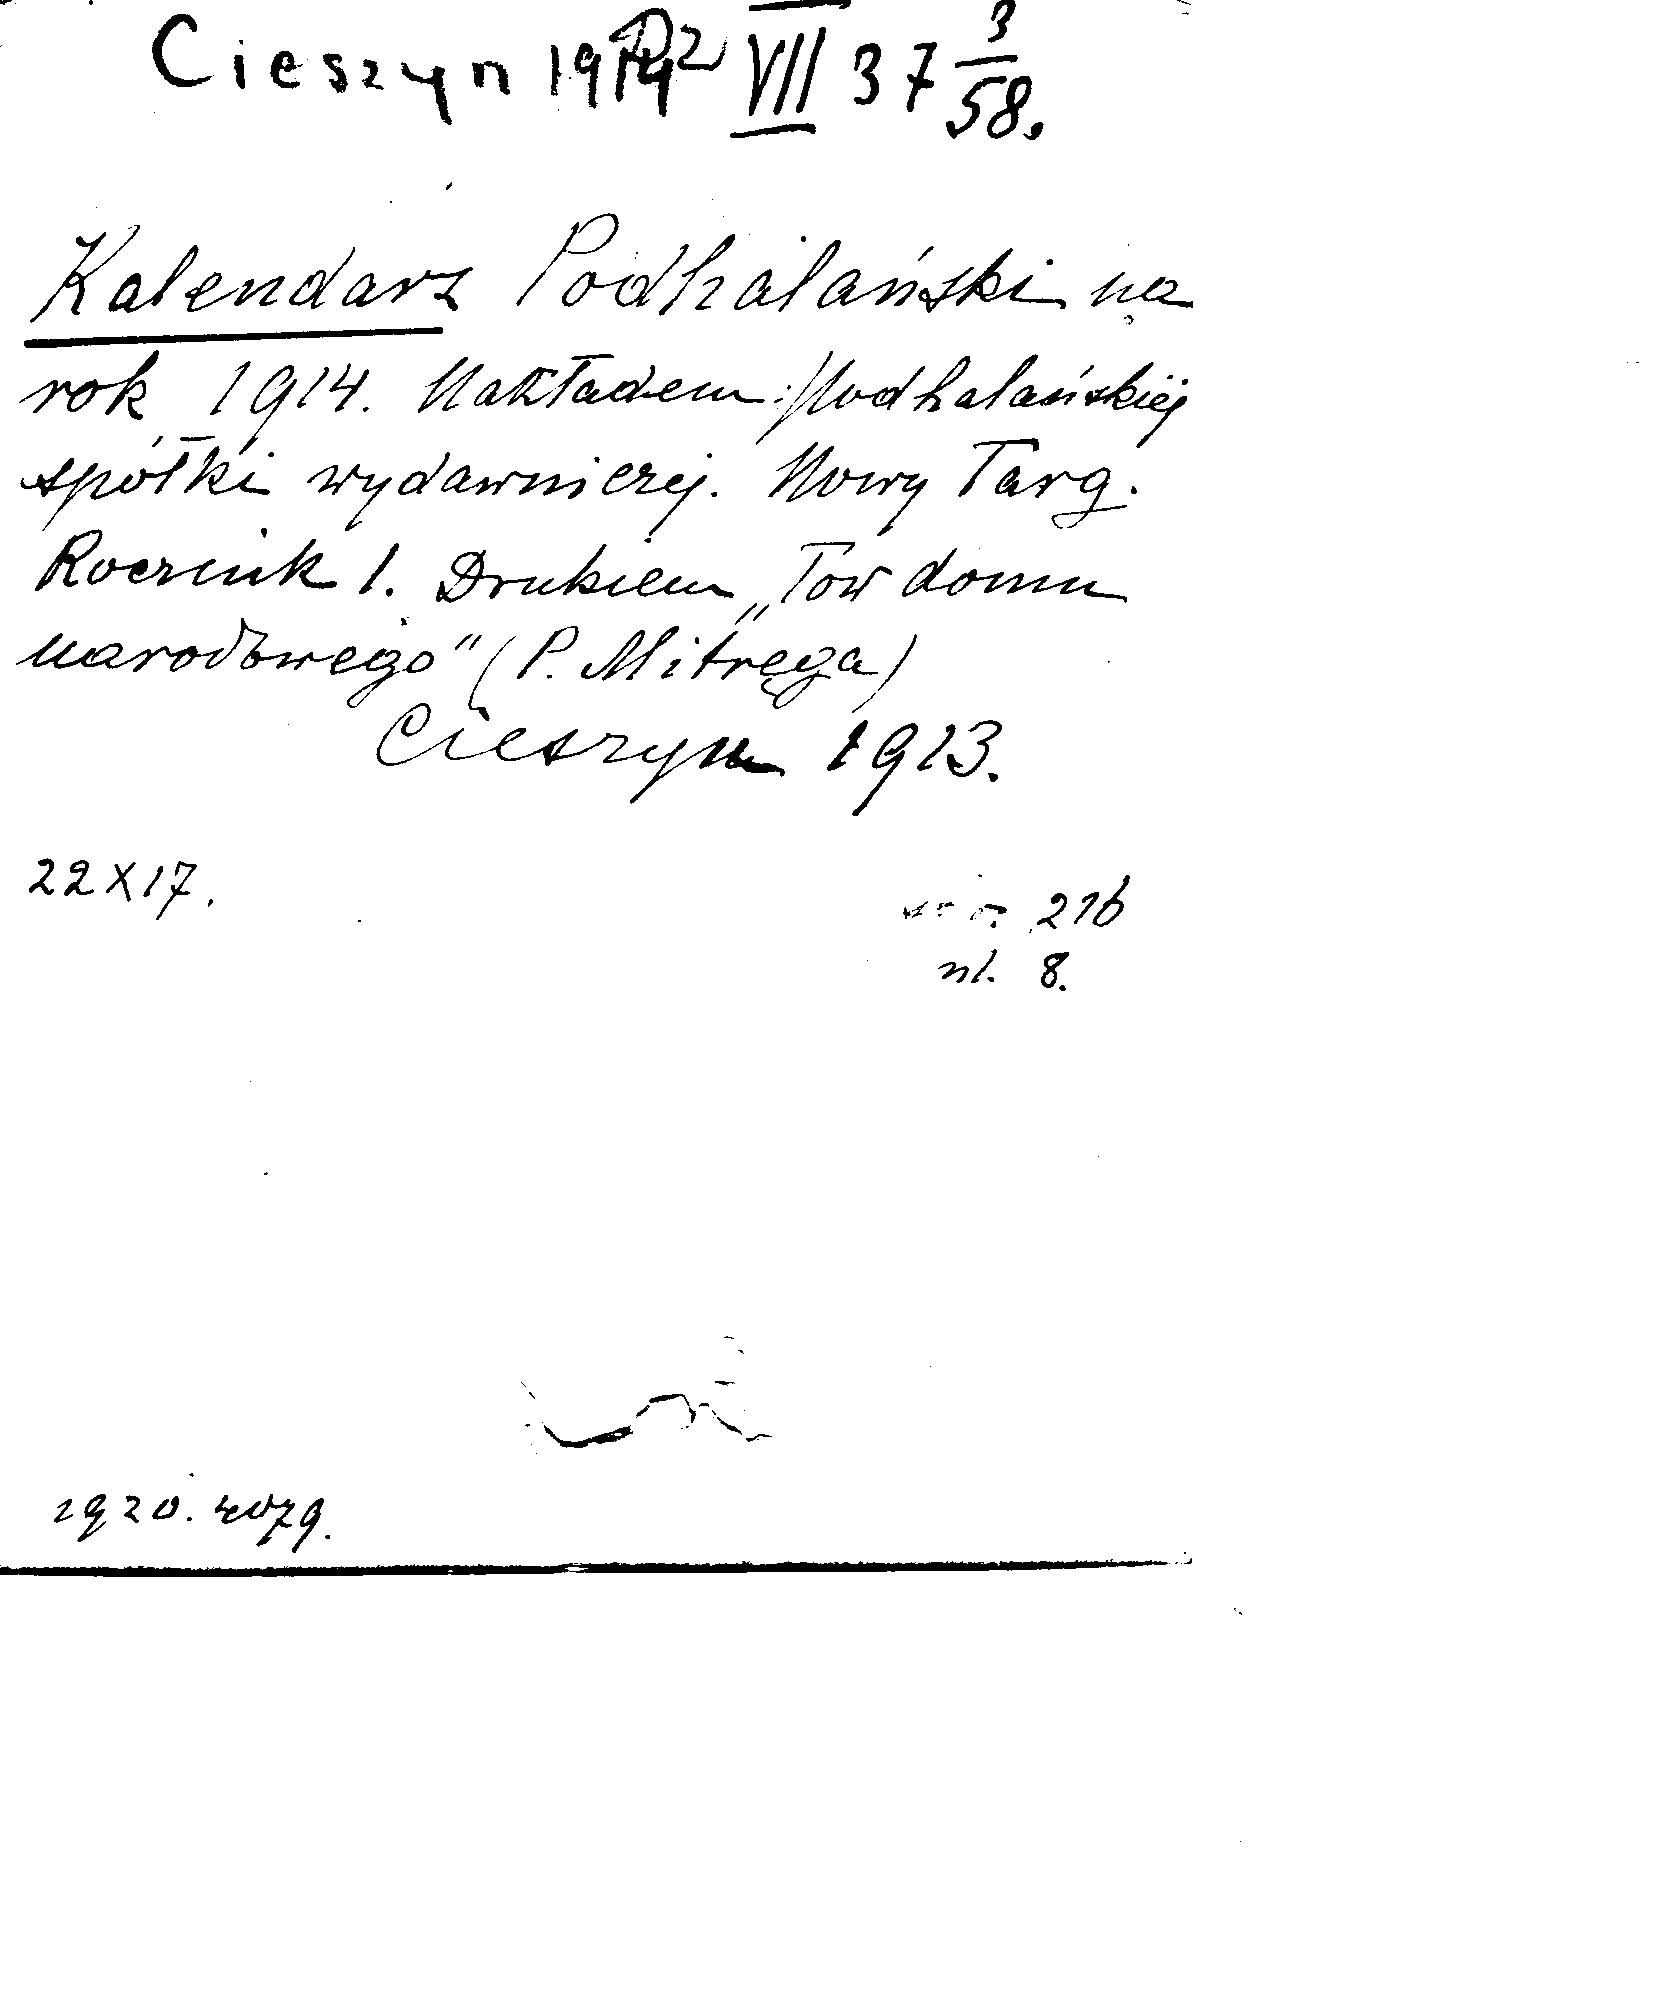 Cieszyn 1914 VII 37 3/58.
Kalendarz Podhalański na
rok 1914. Nakładem Podhalańskiej
spółki wydawniczej. Nowy Targ.
Rocznik 1. Drukiem „Tow domu
narodowego" (P. Mitręga)
Cieszyn 1913.
22X17.
216
nl. 8.
1920. 4079.